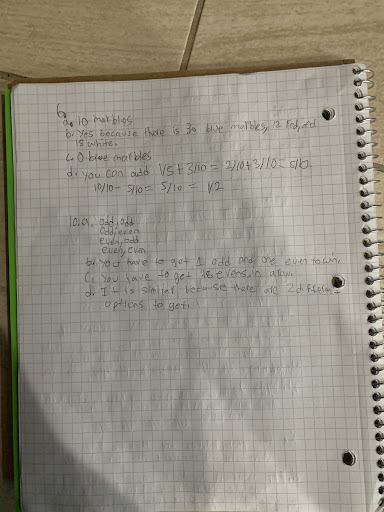 6.
a. 10 marbles
b. Yes because there is 30 blue marbles, 12 red, and
18 white.
c. 0 blue marbles
d. you can add 1/5 + 3/10 = 2/10 + 3/10 = 5/10.
10/10 - 5/10 = 5/10 = 1/2
10. a. odd, odd
odd, even
even, odd
even, even
b. you have to get 1 odd and one even to win.
c. you have to get evens in a row.
d. It is similar because there are 2 different
options to get.